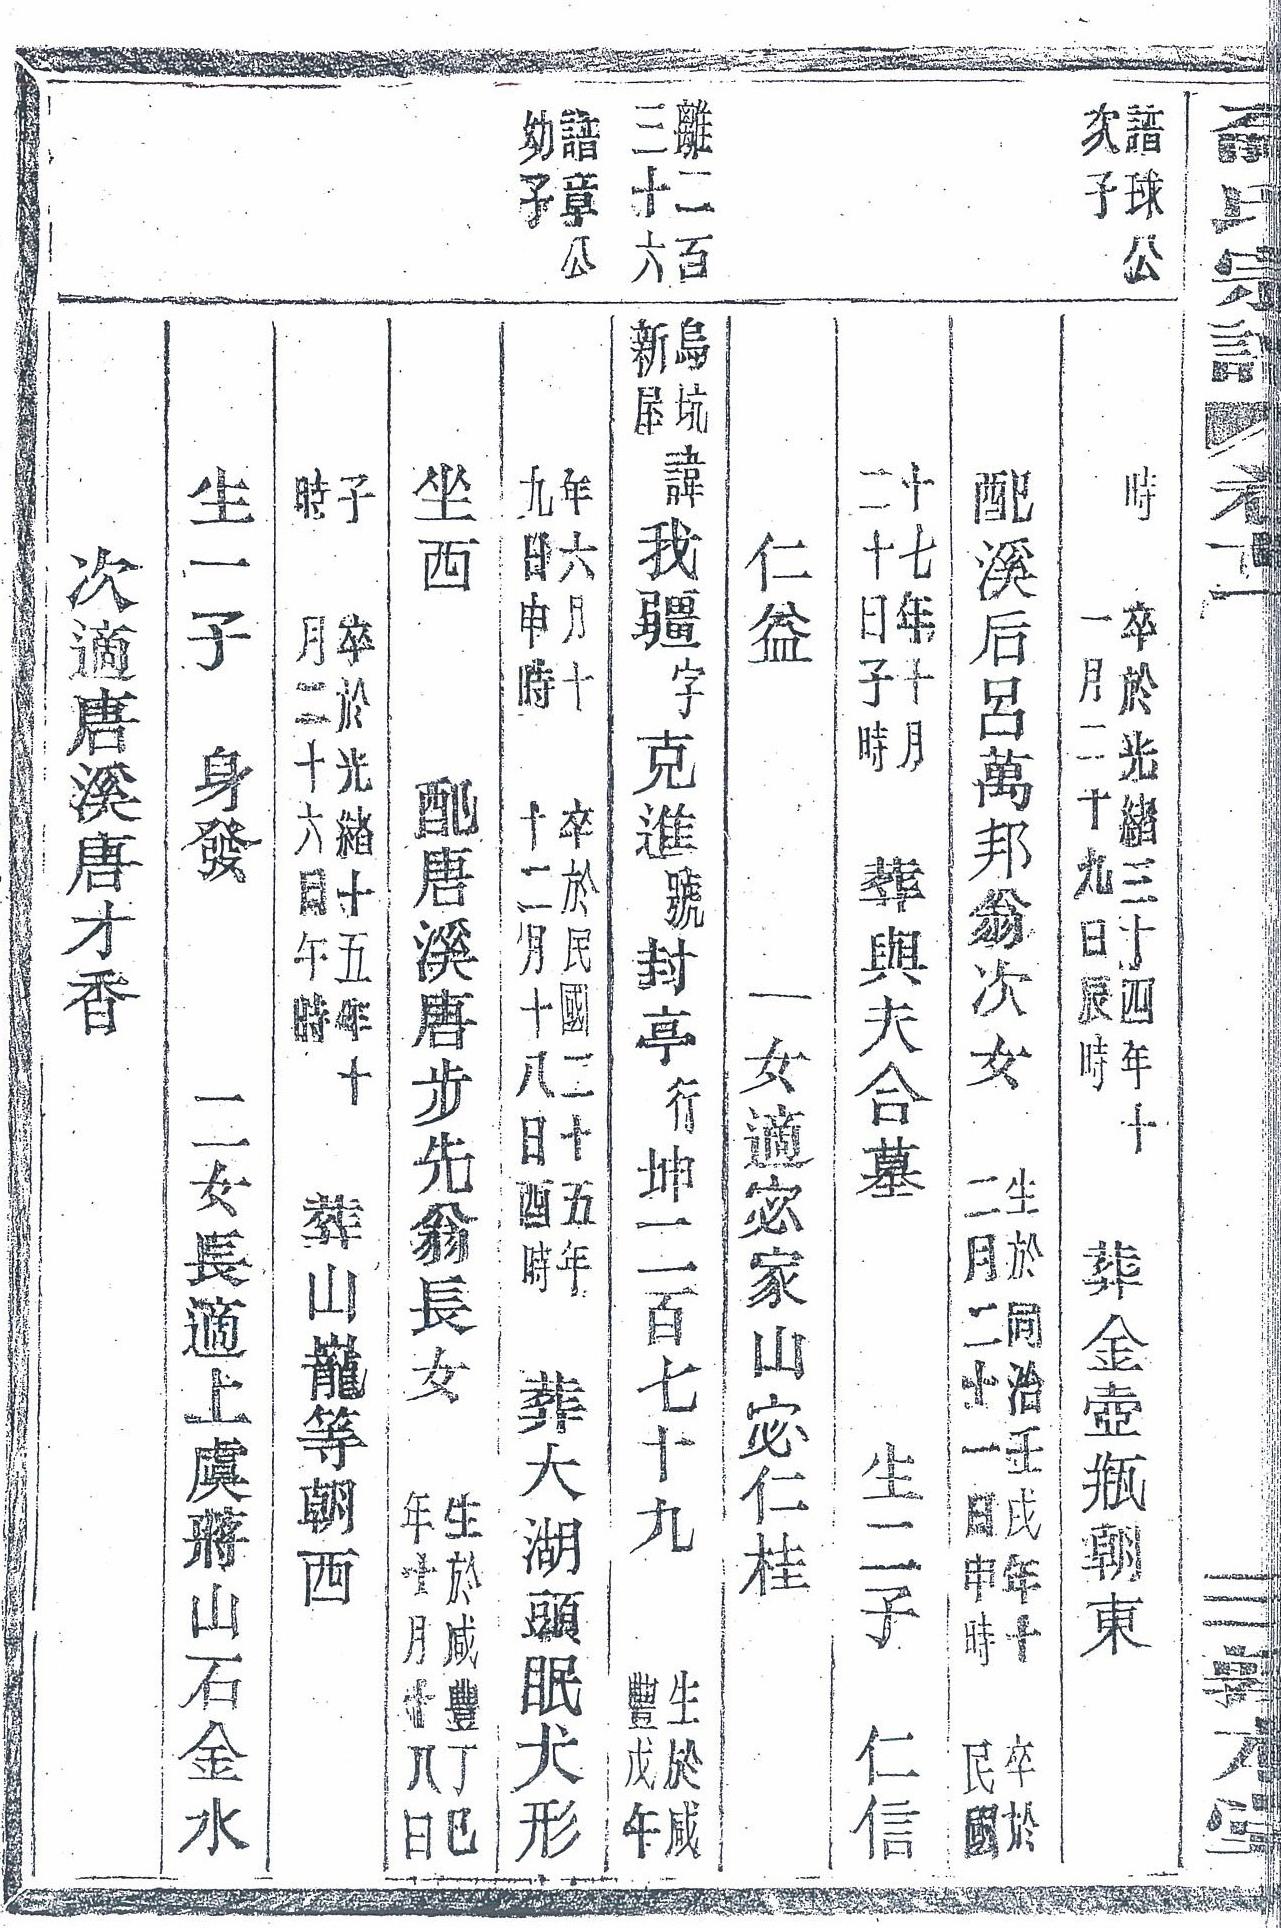 譜球公
次子
時
卒於光緒三十四年十
一月二十九日辰時
葬金壺瓶朝東
配溪后呂萬邦翁次女
生於同治壬戌年十
二月二十一日申時
卒於
民國
十七年十月
二十日子時
葬與夫合墓
生二子
仁信
仁益
一女適宓家山宓仁桂
離二百
三十六
烏坑
新屋
諱我疆字克進號封亭行坤二百七十九
生於咸
豐戊午
譜章公
幼子
年六月十
九日申時
卒於民國二十五年
十二月十八日酉時
葬大湖頭眠犬形
坐西
配唐溪唐步先翁長女
生於咸豐丁巳
年十月廿八日
子
時
卒於光緒十五年十
月二十六日午時
葬山巃等朝西
生一子
身發
二女長適上虞蔣山石金水
次適唐溪唐才香